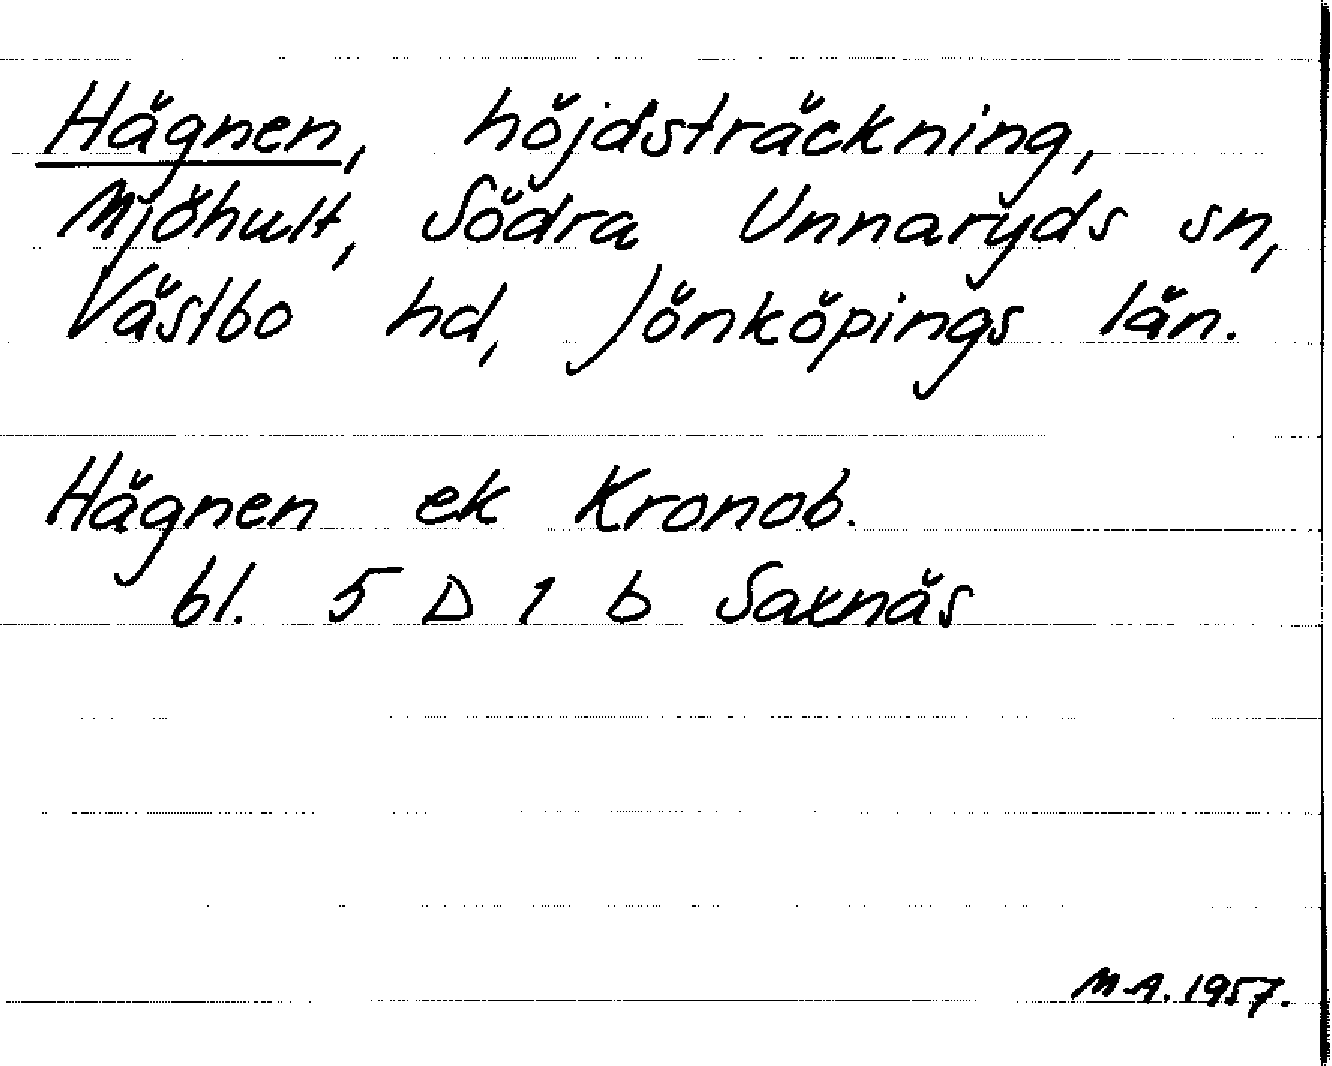 Hägnen, höjdsträckning,
Mjöhult, Södra Unnaryds sn,
Västbo hd, Jönköpings län.
Hägnen ek Kronob.
bl. 5 D 1 b Saxnäs
M-A. 1957.